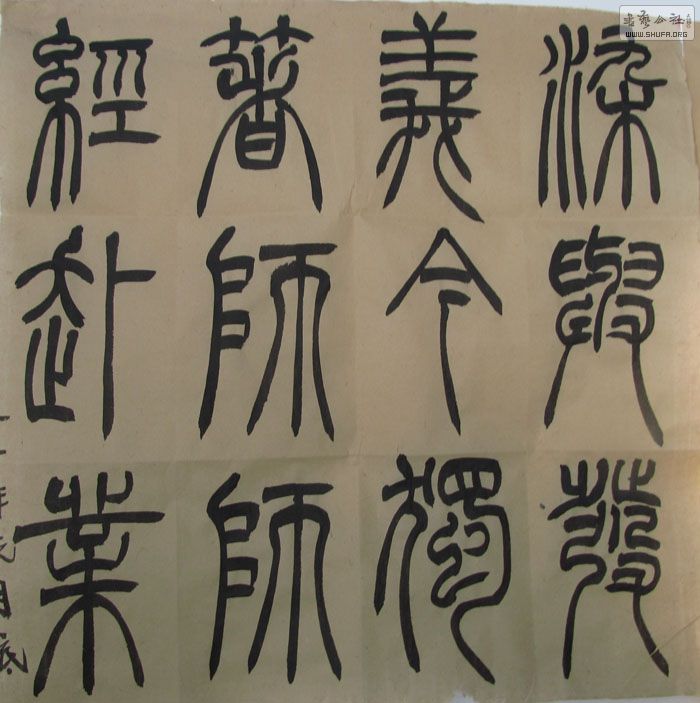 書藝公社
WWW.SHUFA.ORG
染與發
義今獨
著師師
經赴業
年元月底